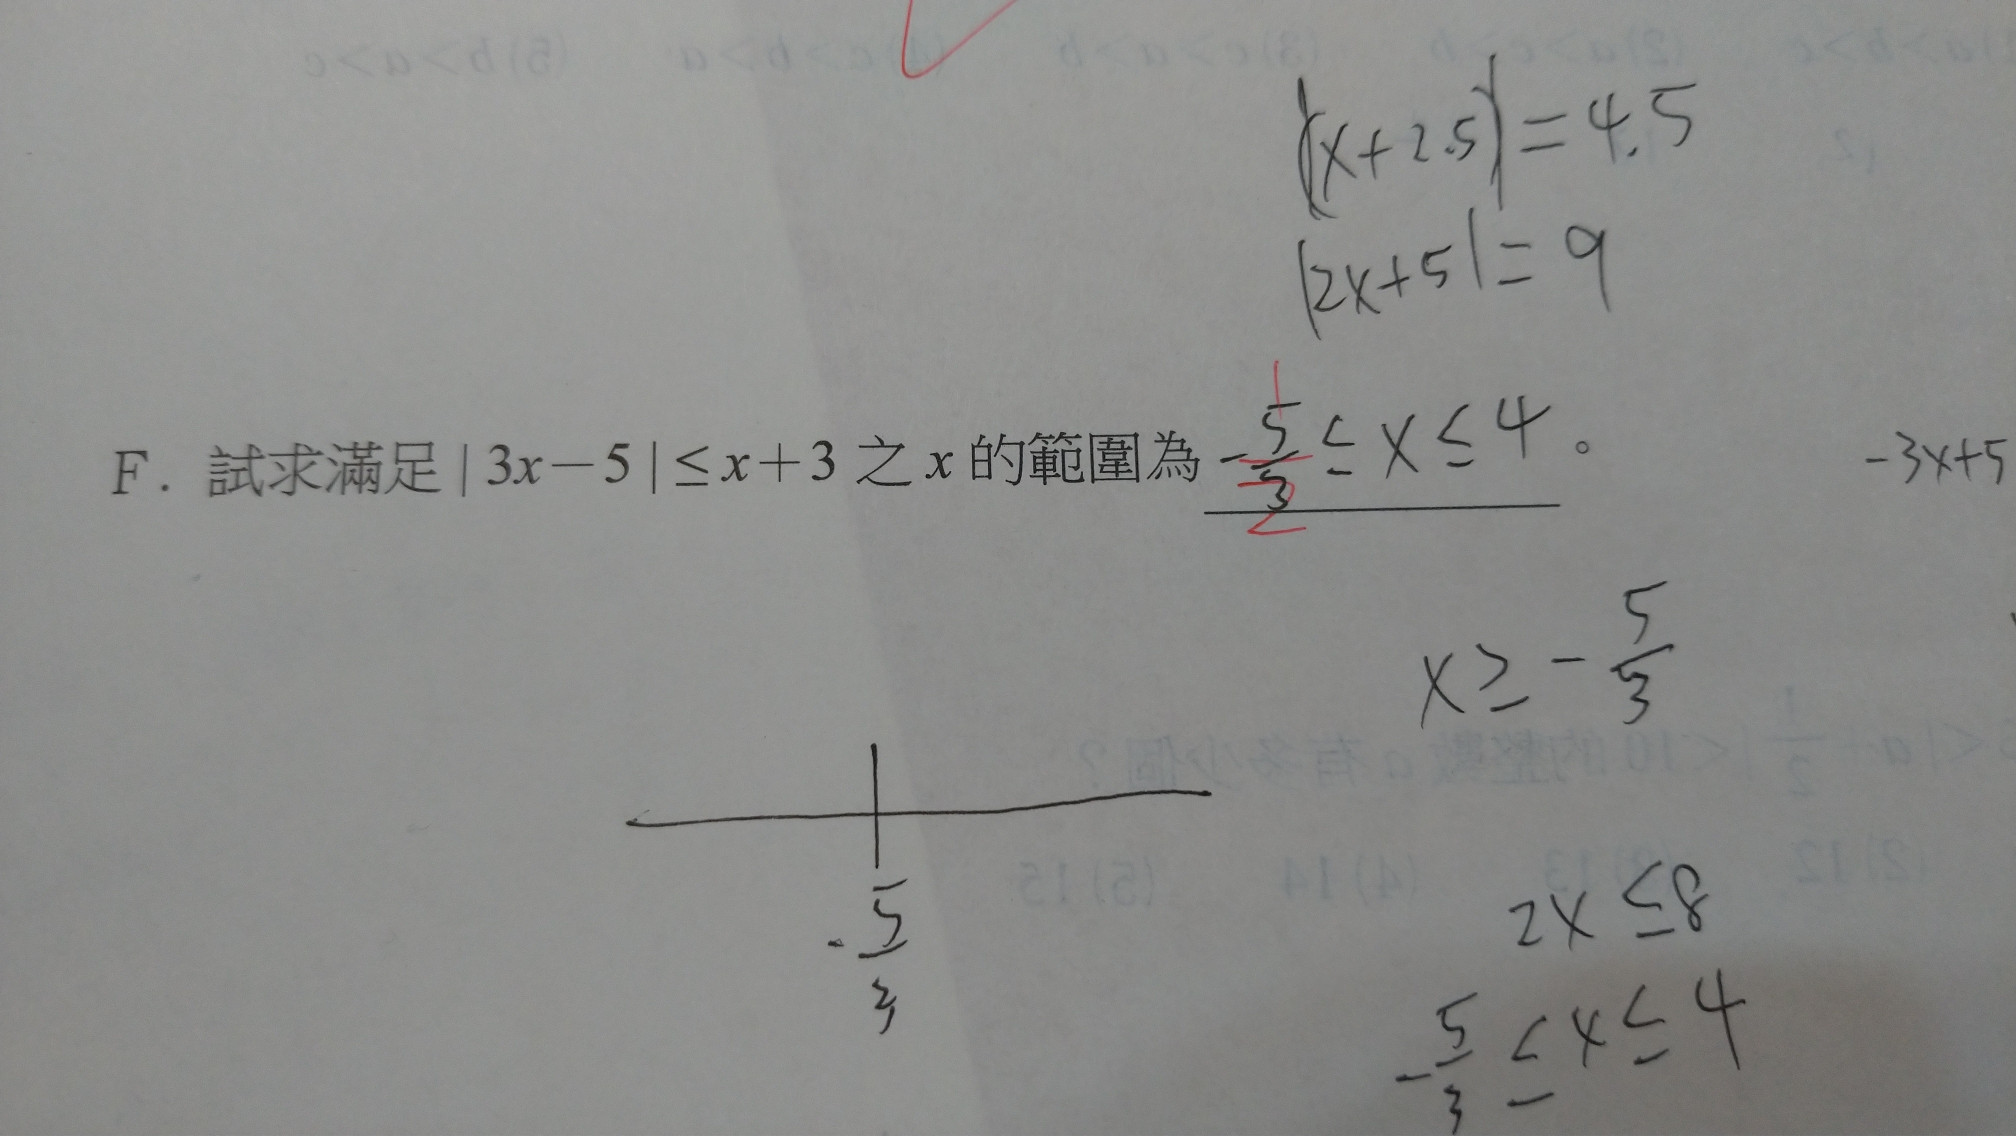 |x+2.5|=4.5
|2x+5|=9
F. 試求滿足|3x-5|≤x+3 之 x 的範圍為 -5/3≤x≤4。
1/2
-3x+5
x≥-5/3
-5/3
2x≤8
-5/3≤x≤4